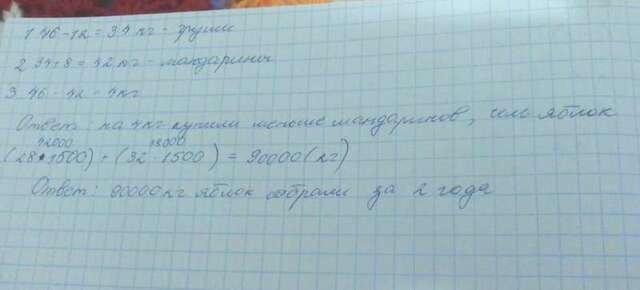 1 46-12=34 кг - груши
2 34+8=42 кг - мандарины
3 46-42=4кг
Ответ: на 4кг купили меньше мандаринов, чем яблок
42000 48000
(28·1500)+(32·1500)=90000(кг)
Ответ: 90000кг яблок собрали за 2 года